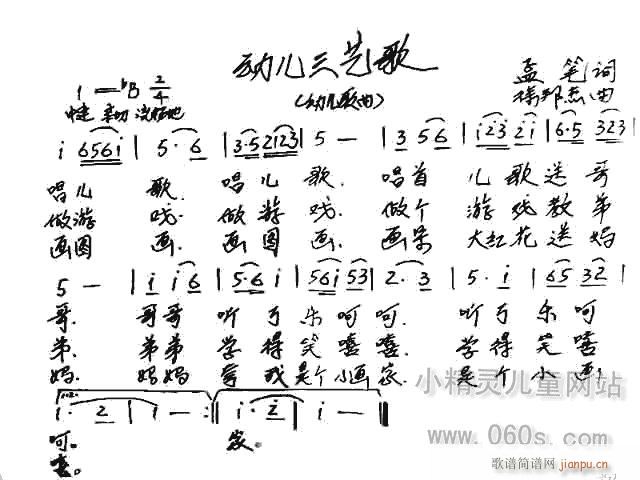 幼儿三艺歌
(幼儿歌曲)
孟 笔 词
徐邦杰 曲
1 = ♭B 2/4
中速 亲切 活泼地
i 6 5 6 i | 5 · 6 | 3 · 5 2 1 2 3 | 5 — | 3 5 6 | i 2 3 2 i | 6 · 5 3 2 3 |
唱儿 歌. 唱儿 歌. 唱首 儿歌送哥
做游 戏. 做游 戏. 做个 游戏教弟
画图 画. 画图 画. 画朵 大红花送妈
5 — | i i 6 | 5 · 6 i | 5 6 i 5 3 | 2 · 3 | 5 · i | 6 5 3 2 |
哥. 哥哥 听了乐呵呵. 听了乐呵
弟. 弟弟 学得笑嘻嘻. 学得笑嘻
妈. 妈妈 夸我是个小画家. 是个小画
i · 2 | i — :| i · 2 | i — ‖
呵. 家.
嘻.
小精灵儿童网站
www.060s.com
歌谱简谱网 jianpu.cn